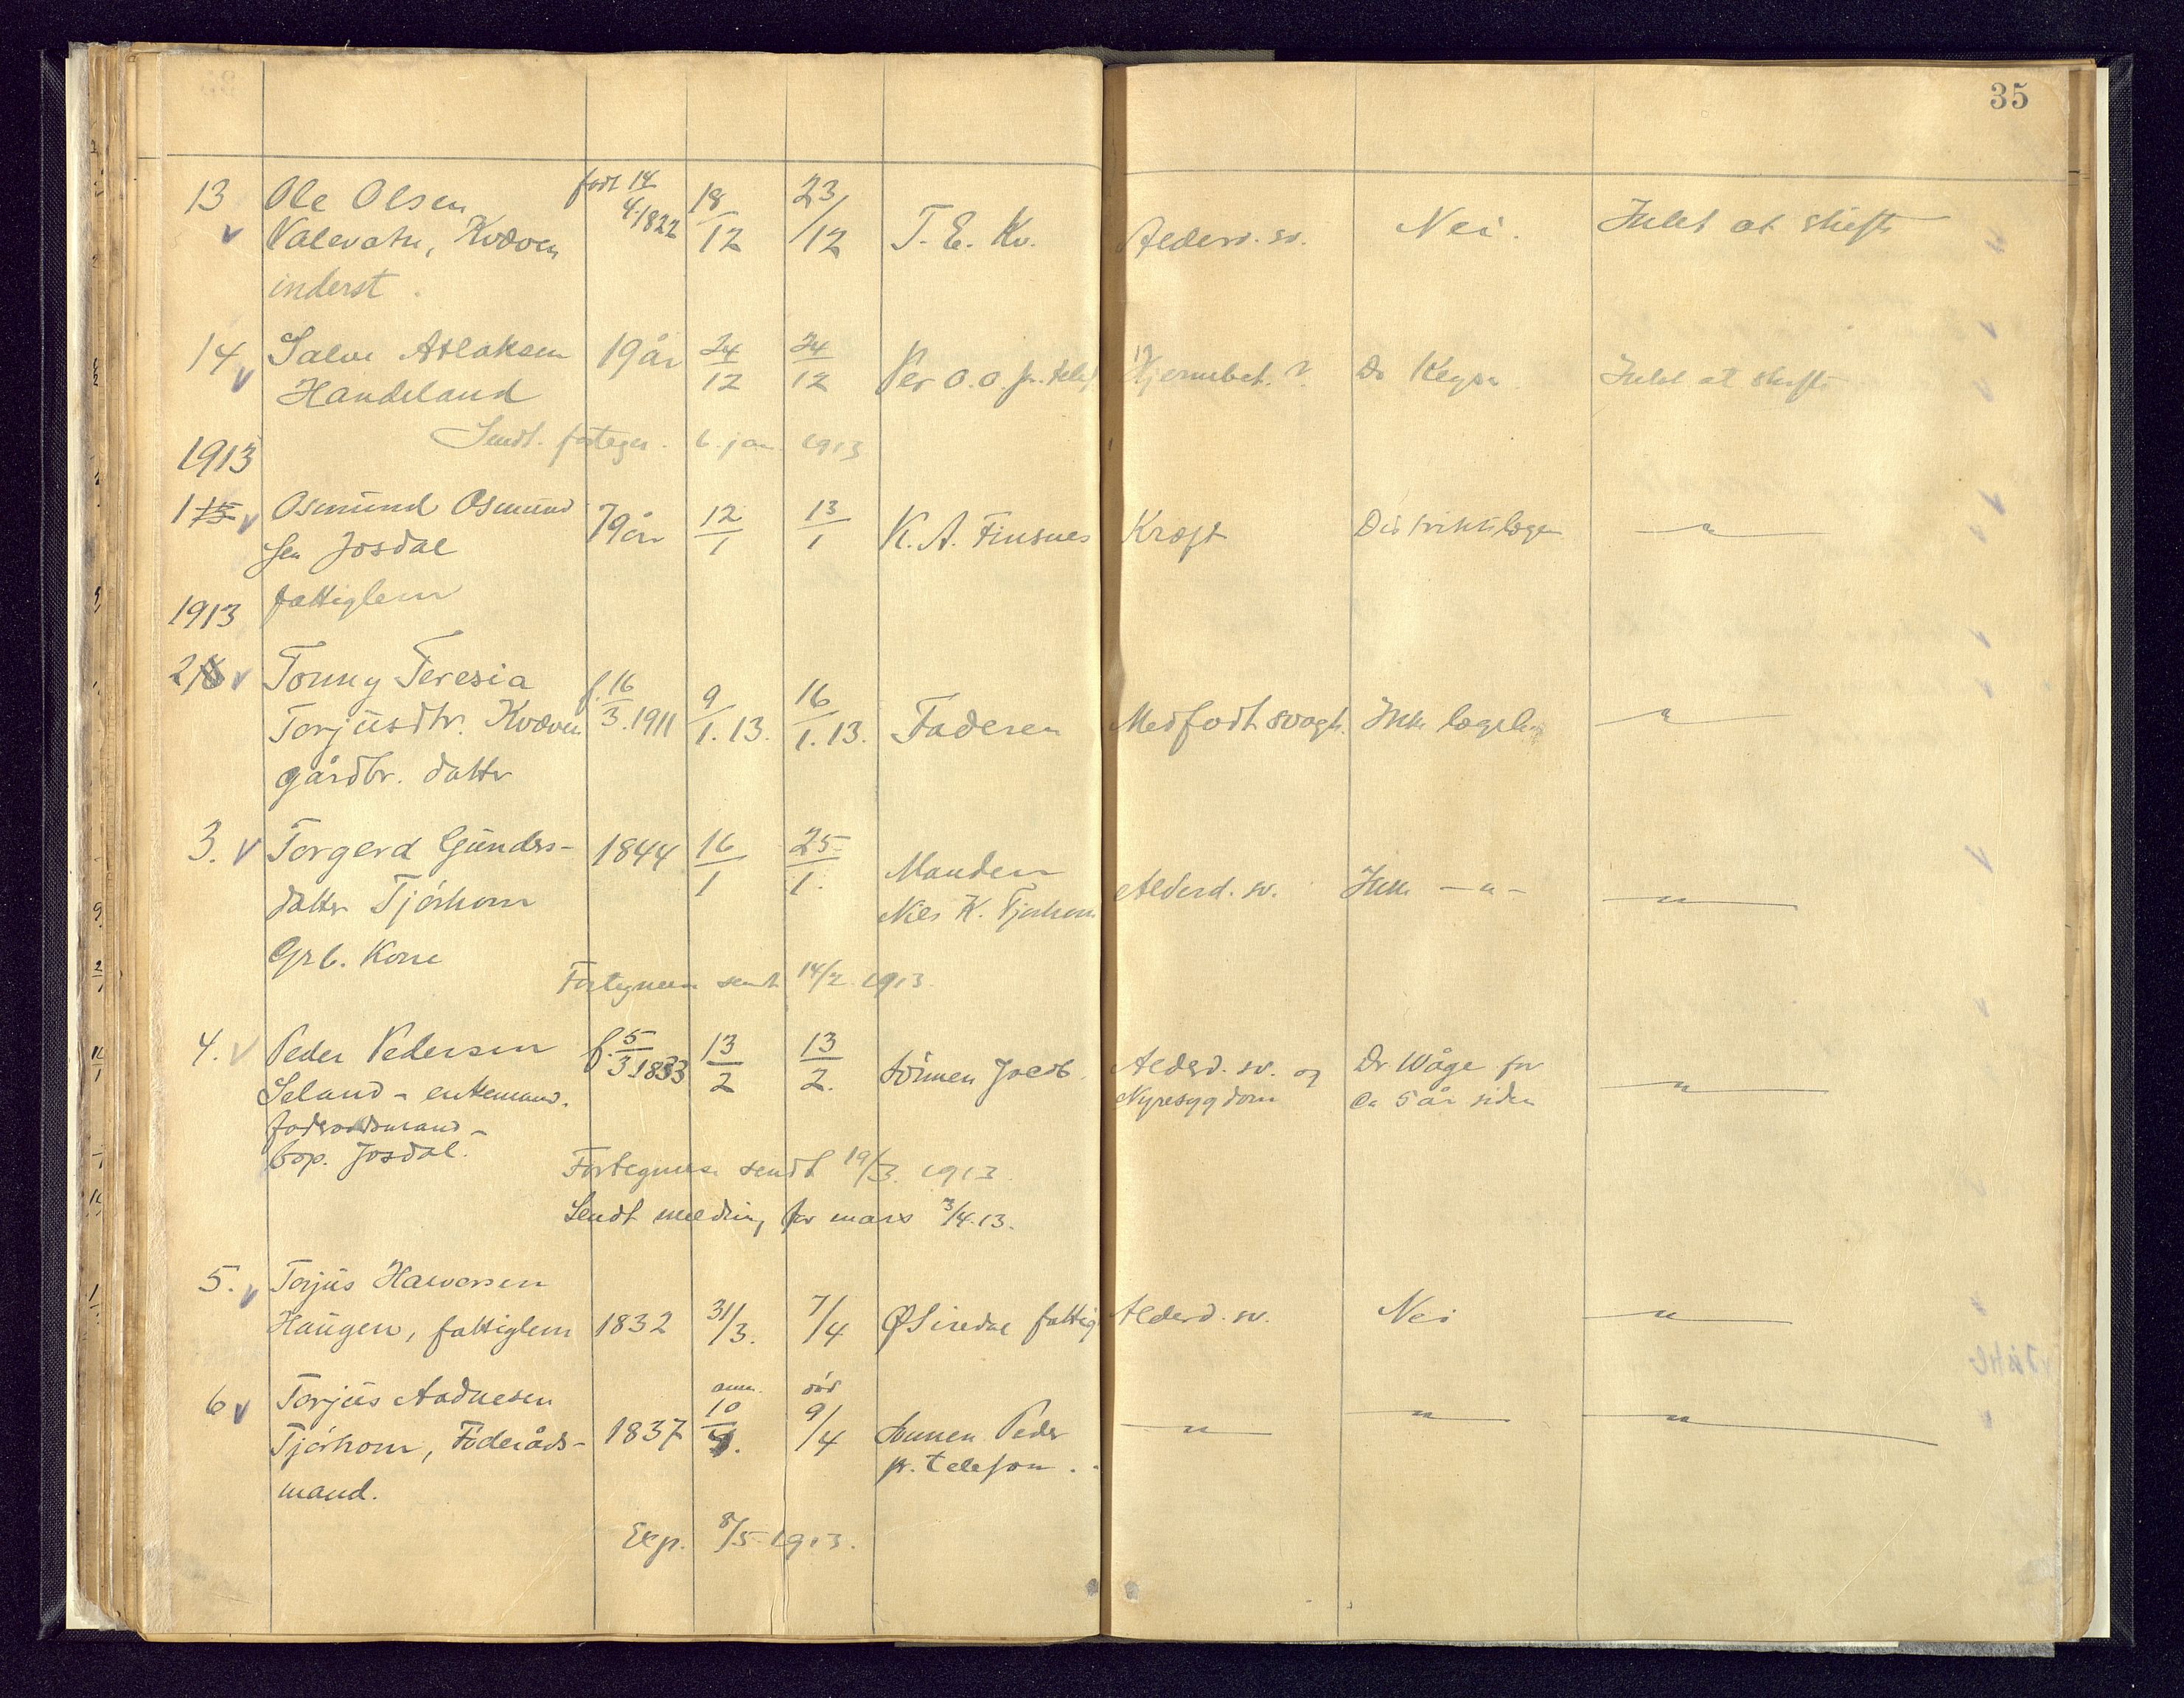 35
13 Ole Olsen født 14/4.1822 18/12 23/12 T. E. Kv. Alderd. sv. Nei. Intet at skifte
Valevatn, Kvæven
inderst.
14 Salve Aslaksen 19 år 24/12 24/12 Per O. O. pr. telef. Hjernebet. ? Dr Keyser Intet at skifte
Handeland
Sendt. fortegn. 6. jan. 1913
1913
1 15 Osmund Osmund 79 år 12/1 13/1 K. A. Finsnes Kræft Distriktslægen —〃—
sen Josdal
fattiglem
1913
2 Tonny Teresia
Torjusdtr. Kvæven f. 16/3.1911 9/1.13. 16/1.13. Faderen Medfødt svagh. Ikke lægeh. —〃—
gårdbr. datter
3. Torgerd Gunders- 1844 16/1 25/1. Manden
datter Tjørhom Nils K. Tjørhom Alderd. sv. Ikke —〃— —〃—
Grb. Kone
Fortegnelse sendt 14/2 1913.
4. Peder Pedersen f. 5/3 1833 13/2 13/2. Sønnen Jacob. Alderd. sv. og Dr Wåge for —〃—
Seland - enkemand. Nyresygdom ca 5 år siden
føderådsmand -
bop. Josdal.
Fortegnelse sendt 19/3. 1913.
Sendt melding for mars 3/4.13.
5. Torjus Haversen
Haugen, fattiglem 1832 31/3. 7/4 O Sinedal fattig Alderd. sv. Nei —〃—
6 Torjus Aadnesen anm. død
Tjørhom, Føderåds- 1837 10/4. 9/4 Sønnen Peder —〃— —〃— —〃—
mand. pr. telefon.
Exp. 8/5 1913.